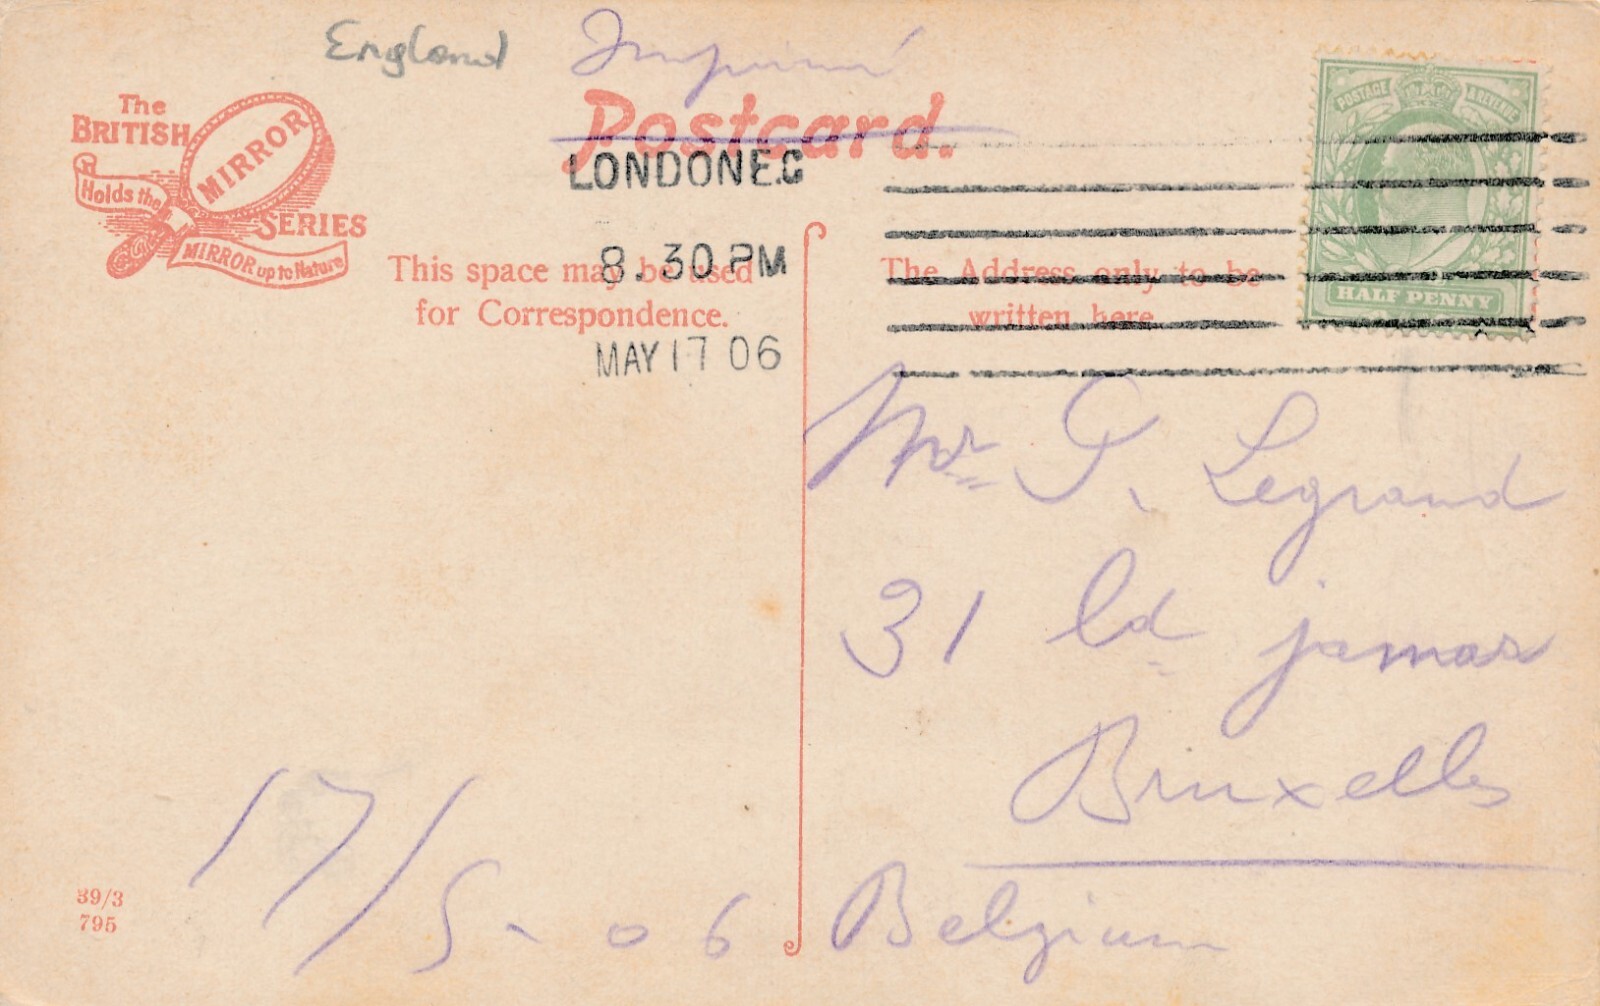 England Imprimé
The
BRITISH
MIRROR
SERIES
Holds the
MIRROR up to Nature
Postcard.
LONDON E.C
8.30 PM
MAY 17 06
This space may be used
for Correspondence.
The Address only to be
written here
POSTAGE & REVENUE
HALF PENNY
Mr G. Legrand
31 Bd jamar
Bruxelles
Belgium
17/5-06
39/3
795